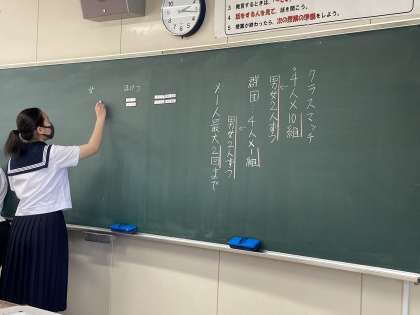 話をする人を見て、話を聞こう。
5 授業が終わったら、次の授業の準備をしよう。
クラスマッチ
4人×10組
男女2人ずつ
群団 4人×1組
男女2人ずつ
1人最大2回まで